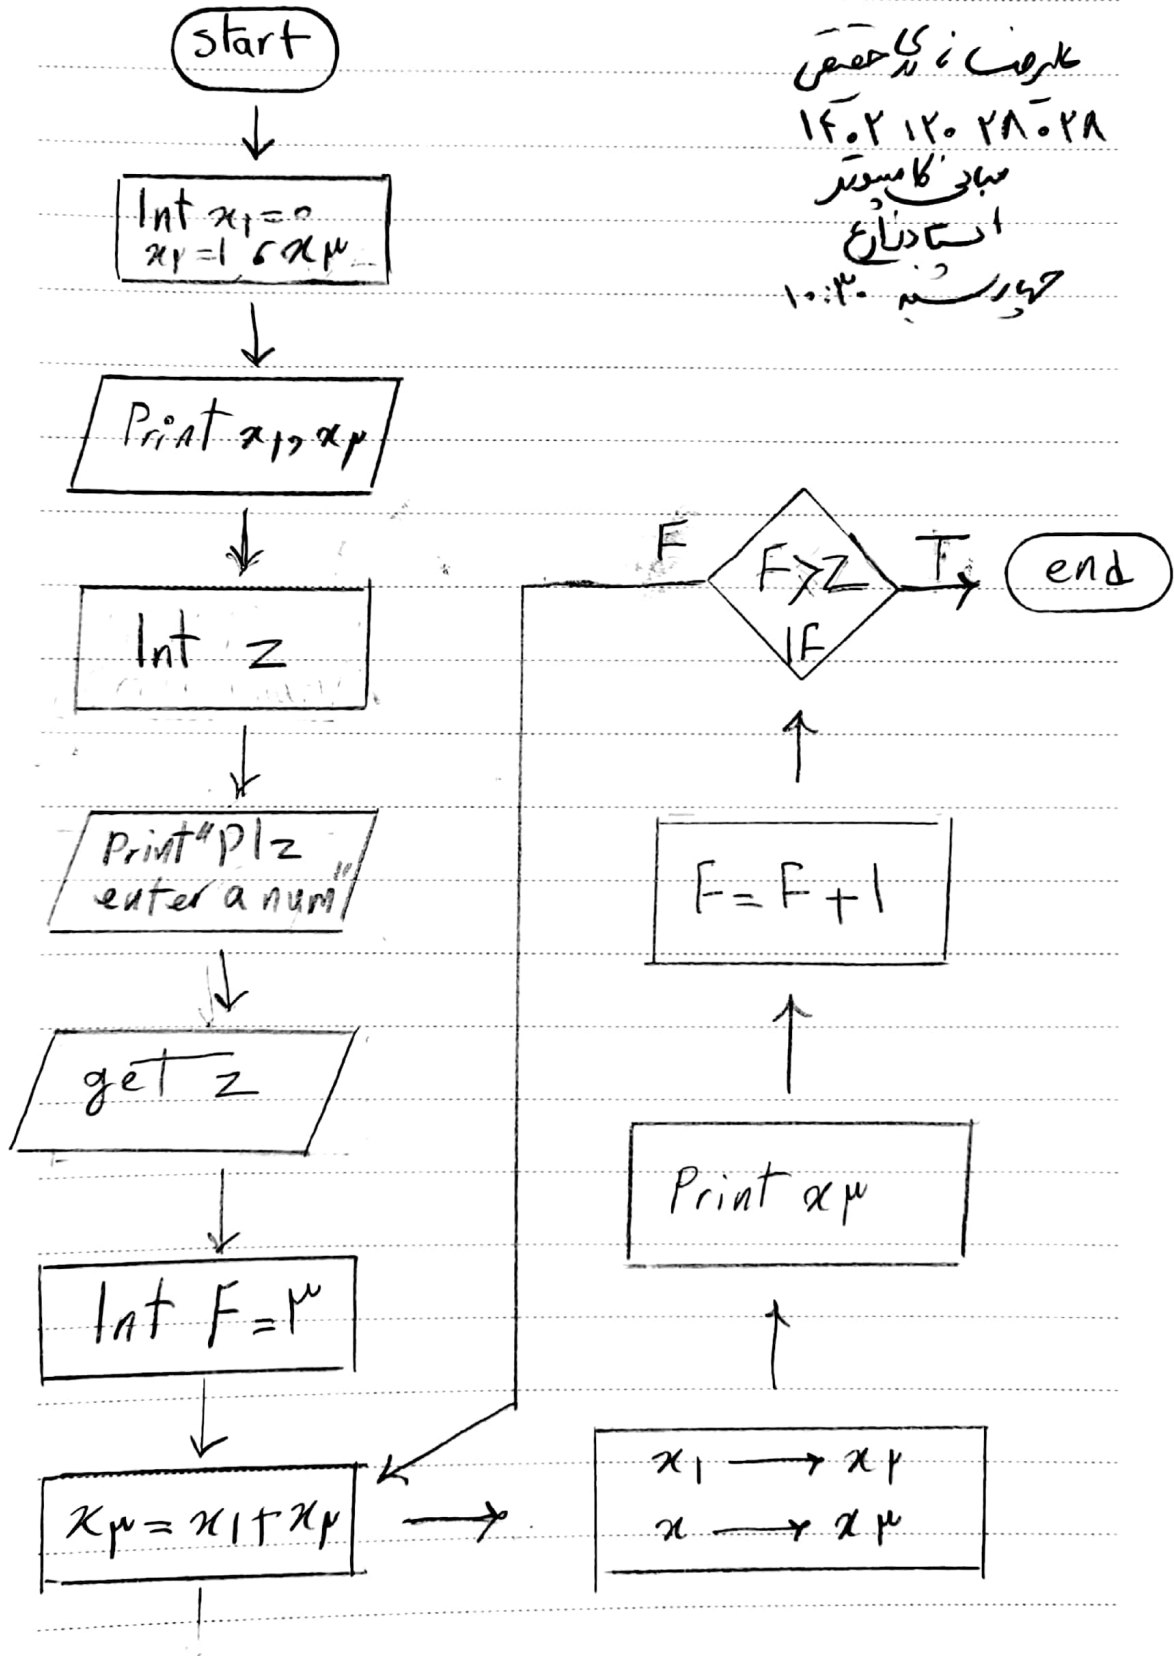 start
Int x₁=۰
x۲=1 , x۳
Print x₁, x۲
Int z
Print "Plz
enter a num"
get z
Int F=۳
x۳=x₁+x۲
x₁ → x۲
x → x۳
Print x۳
F=F+1
F>Z
IF
F
T
end
حقیقی
مبانی کامپیوتر
استاد زارع
چهارشنبه ۱۰:۳۰